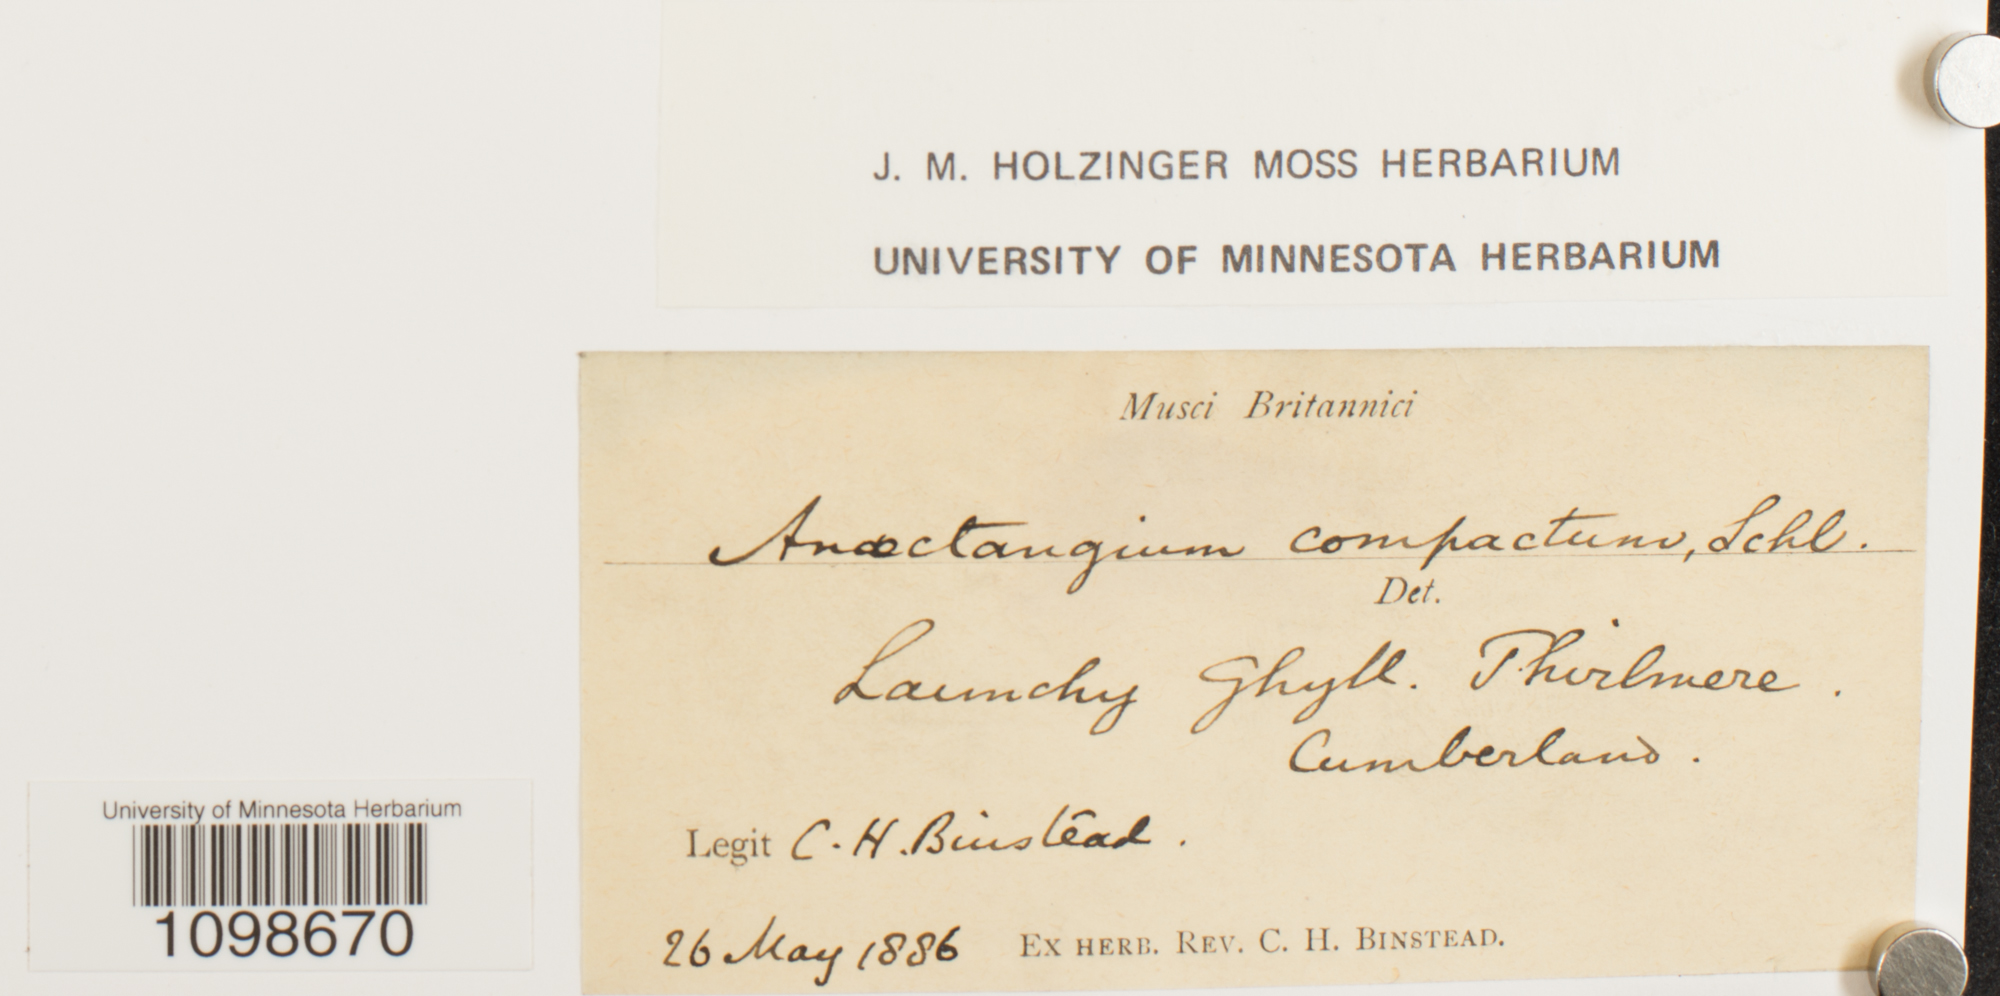 J. M. HOLZINGER MOSS HERBARIUM
UNIVERSITY OF MINNESOTA HERBARIUM
Musci Britannici
Anœctangium compactum, Schl.
Det.
Launchy Ghyll. Thirlmere.
Cumberland.
Legit C. H. Binstead.
26 May 1886 Ex herb. Rev. C. H. Binstead.
University of Minnesota Herbarium
1098670